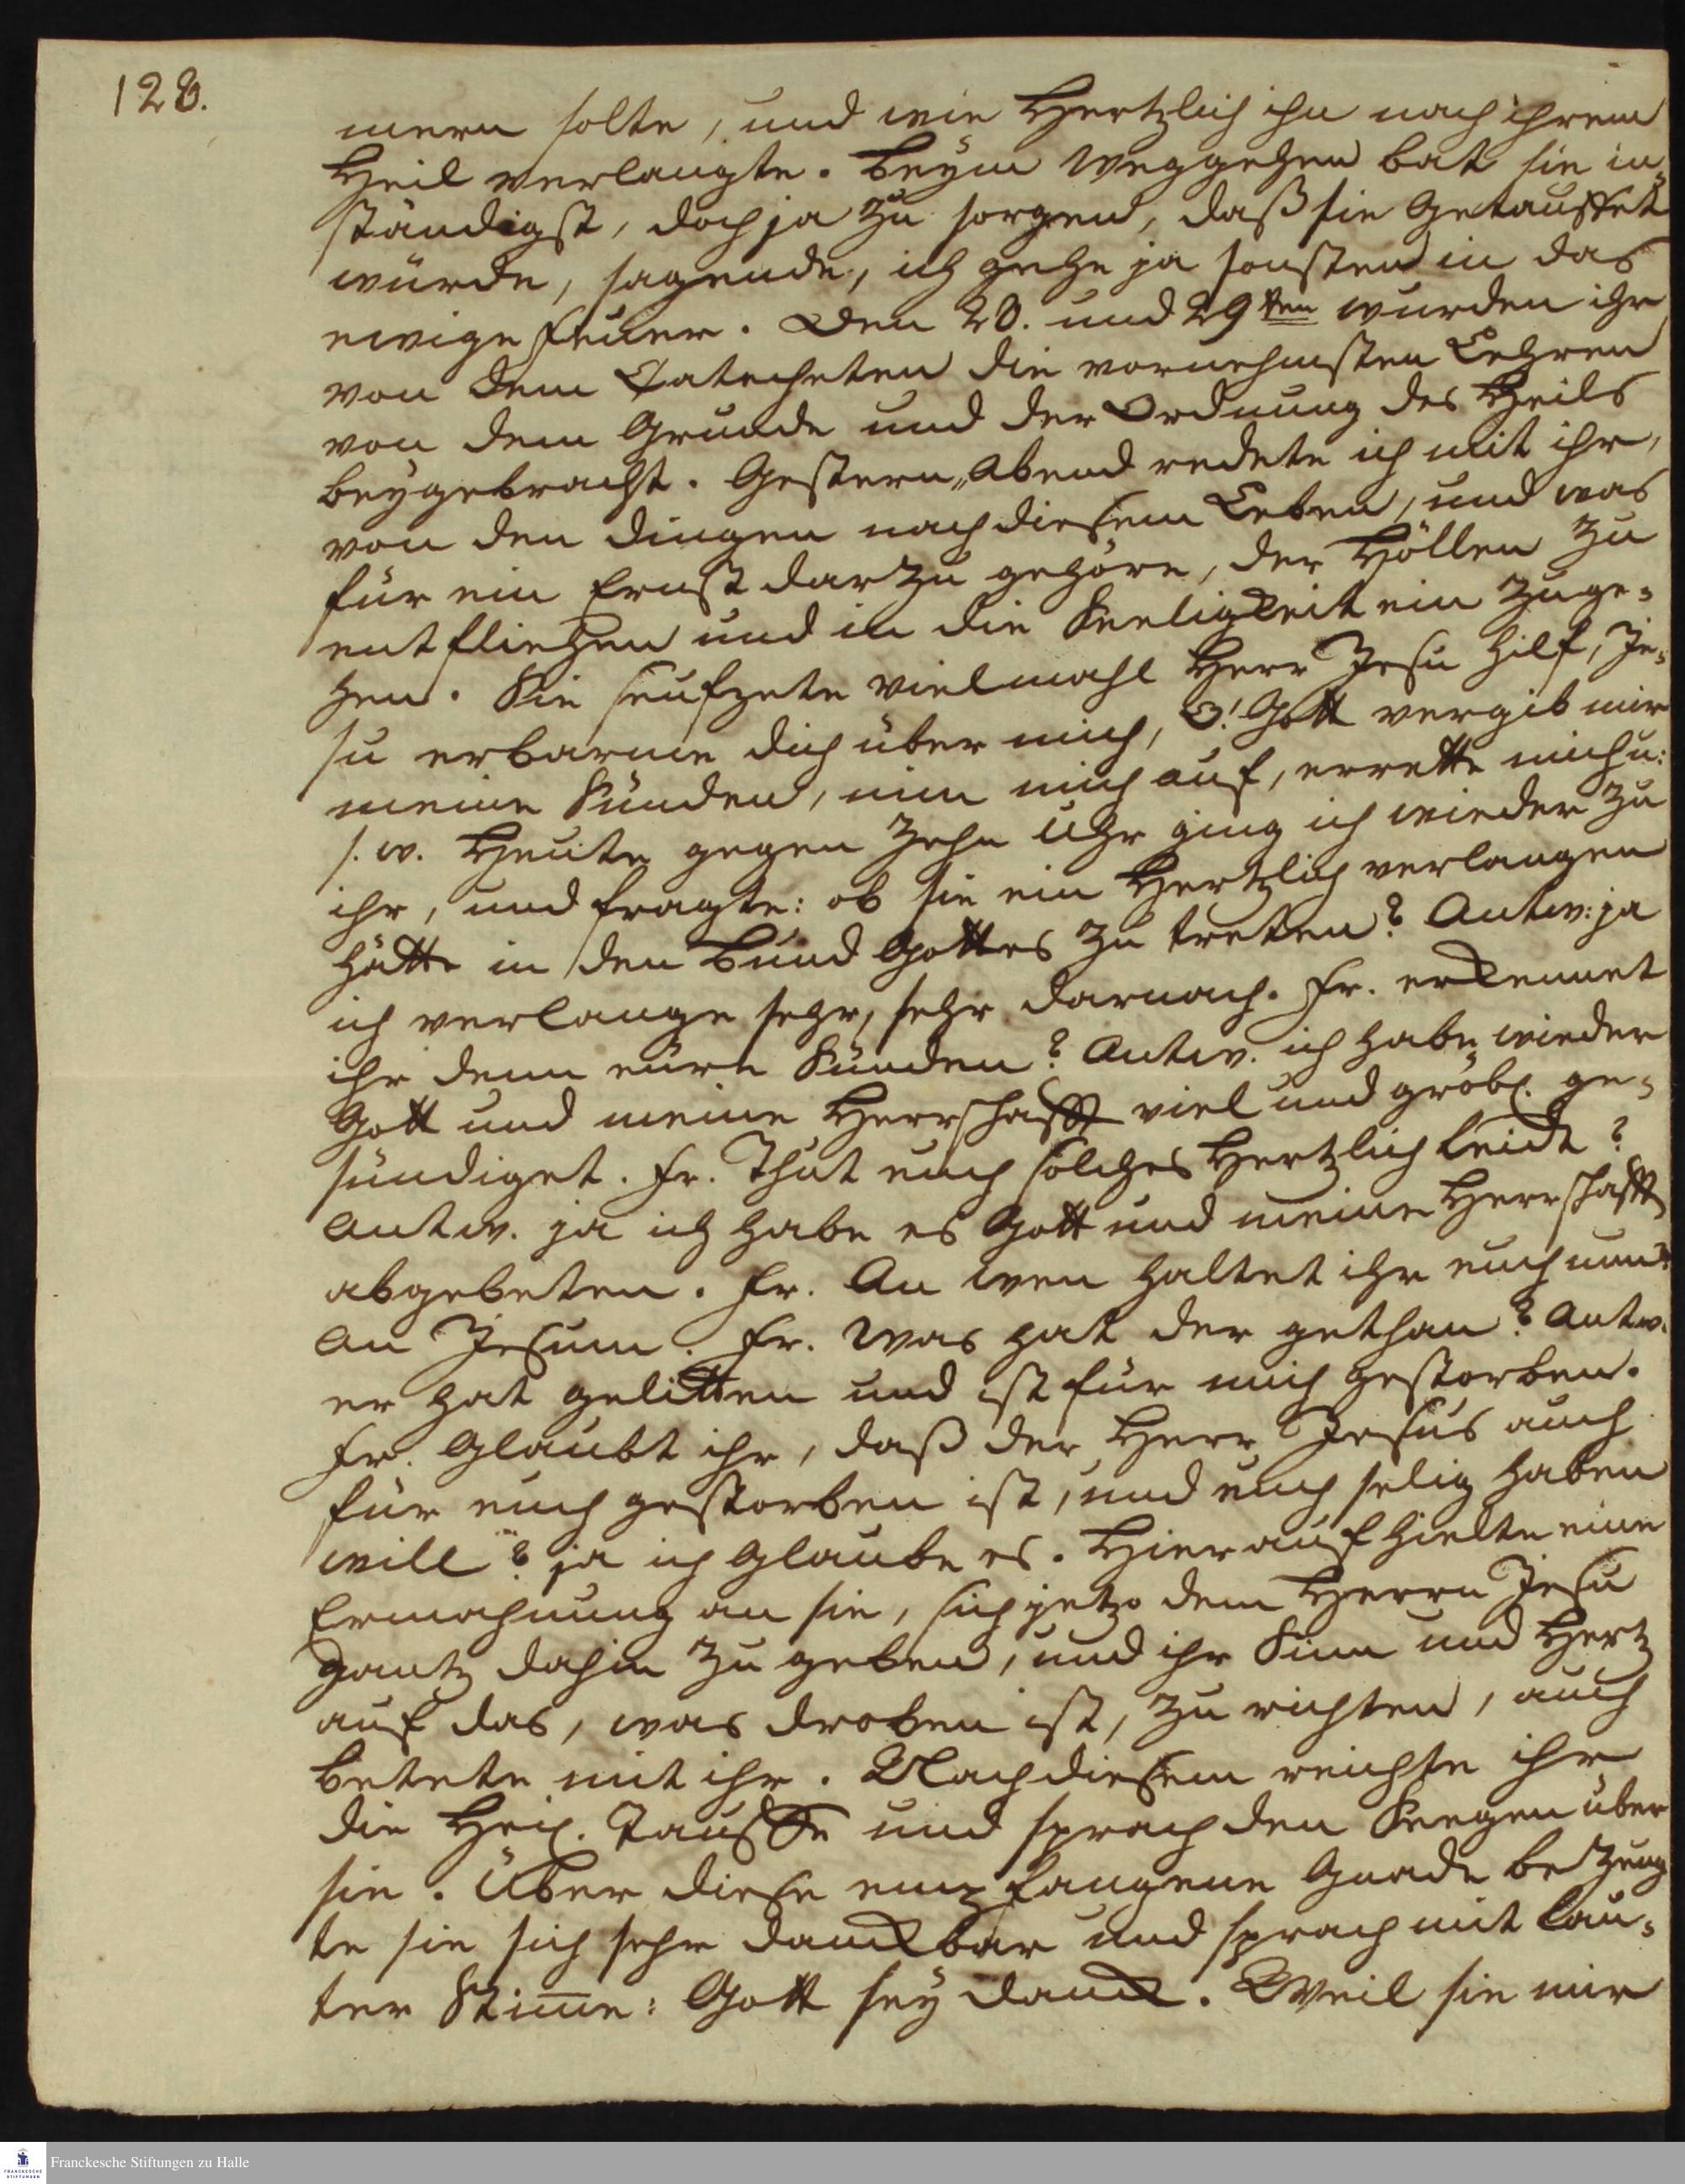 128.
mern solte, und wie Hertzlich ihn nach ihrem
Heil verlangte. Beÿm Weggehen bat sie in-
ständigst, doch ja zu sorgen, daß sie Getauffet
würde, sagende, ich gehe ja sonsten in das
ewige Feuer. Den 28. und 29ten wurden ihr
von dem Catecheten die vornehmsten Lehren
von dem Grunde und der Ordnung des Heils
beÿgebracht. Gestern Abend redete ich mit ihr,
von den Dingen nach diesem Leben, und was
für ein Ernst darzu gehöre, der Höllen zu
entfliehen und in die Seeligkeit ein zuge-
hen. Sie seufzete vielmahl Herr Jesu hilf, Je-
su erbarme dich über mich, O! Gott vergib mir
meine Sünden, nim mich auf, errette mich u:
s. w. Heute gegen Zehn Uhr ging ich wieder zu
ihr, und fragte: ob sie ein Hertzlich verlangen
hätte in den Bund Gottes zu treten? Antw: ja
ich verlange sehr, sehr darnach. Fr. erkennet
ihr denn eure Sünden? Antw. ich habe wieder
Gott und meine Herrschafft viel und gröbl. ge-
sündiget. Fr. Thut euch solches Hertzlich Leidt?
Antw. ja ich habe es Gott und meiner Herrschafft
abgebeten. Fr. An wen haltet ihr euch nun?
An Jesum. Fr. Was hat der gethan? Antw.
er hat gelitten und ist für mich gestorben.
Fr. Glaubt ihr, daß der Herr Jesus auch
für euch gestorben ist, und euch selig haben
will? ja ich Glaube es. Hierauf hielte eine
Ermahnung an sie, sich jetzo dem Herrn Jesu
gantz dahin zu geben, und ihr Sinn und Hertz
auf das, was droben ist, zu richten, auch
betete mit ihr. Nach diesem reichte ihr
die Heil. Tauffe und sprach den Seegen über
sie. Über diese empfangene Gnade bezeug
te sie sich sehr danckbar und sprach mit lau-
ter Stimme: Gott seÿ danck. Weil sie mir
Franckesche Stiftungen zu Halle
FRANCKESCHE
STIFTUNGEN